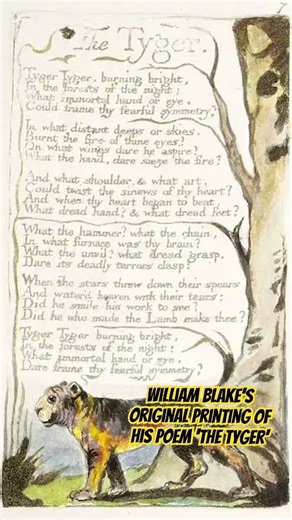 The Tyger.
Tyger Tyger, burning bright,
In the forests of the night;
What immortal hand or eye,
Could frame thy fearful symmetry?
In what distant deeps or skies.
Burnt the fire of thine eyes?
On what wings dare he aspire?
What the hand, dare sieze the fire?
And what shoulder, & what art,
Could twist the sinews of thy heart?
And when thy heart began to beat,
What dread hand? & what dread feet?
What the hammer? what the chain,
In what furnace was thy brain?
What the anvil? what dread grasp,
Dare its deadly terrors clasp?
When the stars threw down their spears
And water'd heaven with their tears:
Did he smile his work to see?
Did he who made the Lamb make thee?
Tyger Tyger burning bright,
In the forests of the night:
What immortal hand or eye,
Dare frame thy fearful symmetry?
WILLIAM BLAKE'S
ORIGINAL PRINTING OF
HIS POEM 'THE TYGER'